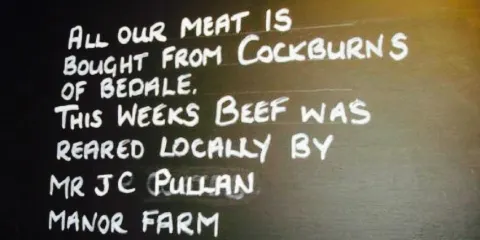 ALL OUR MEAT IS
BOUGHT FROM COCKBURNS
OF BEDALE.
THIS WEEKS BEEF WAS
REARED LOCALLY BY
MR JC PULLAN
MANOR FARM